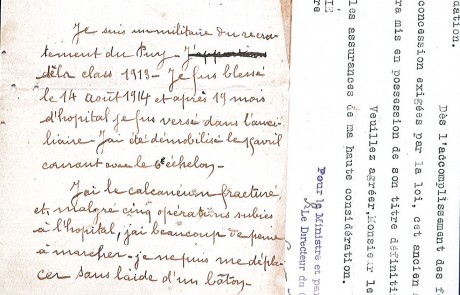 Je suis un militaire du recru-
tement du Puy - J'appartiens
de la class 1913 - Je fus blessé
le 14 août 1914 et après 19 mois
d'hopital je fus versé dans l'auxi-
liaire J'ai été démobilisé le 5 avril
courant avec le 6e échelon -
J'ai le calcanéum fracturé
et, malgré cinq opérations subies
à l'hopital, j'ai beaucoup de peine
à marcher - je ne puis me dépla-
cer sans l'aide d'un bâton -
dation.
Dès l'accomplissement des f
concession exigées par la loi, cet ancien
ra mis en possession de son titre définiti
Veuillez agréer, Monsieur le
les assurances de ma haute considération.
Pour le Ministre et par
Le Directeur du